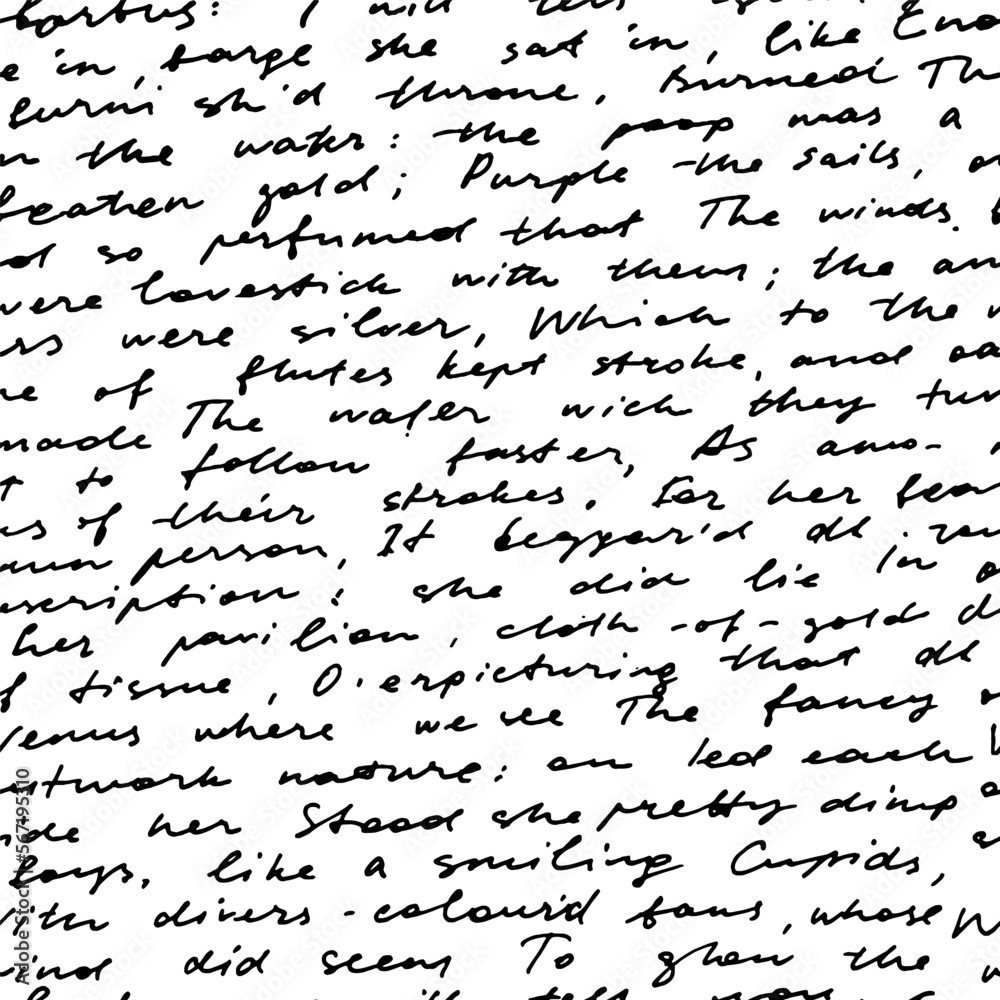 will tell
e in, barge she sat in, like Eno
burni sh'd throne, Burned Th
n the water: the poop was a
beathen gold; Purple the sails, an
d so perfumed that The winds.
were lovestick with them; the am
rs were silver, Which to the
ne of flutes kept stroke, and oa
made The wafer wich they tun
t to follow faster, As amo-
us of their strokes. For her bea
own person, It beggar'd all
escription: she did lie in
her pavilion, cloth-of-gold
f tissue, O. erpicturing that all
Venus where we see The fancy
utwork nature: on led each
ide her Stood she pretty dimp
boys, like a smiling Cupids,
With divers-colour'd fans, whose
ind did seem To glow the
Adobe Stock | #567195310